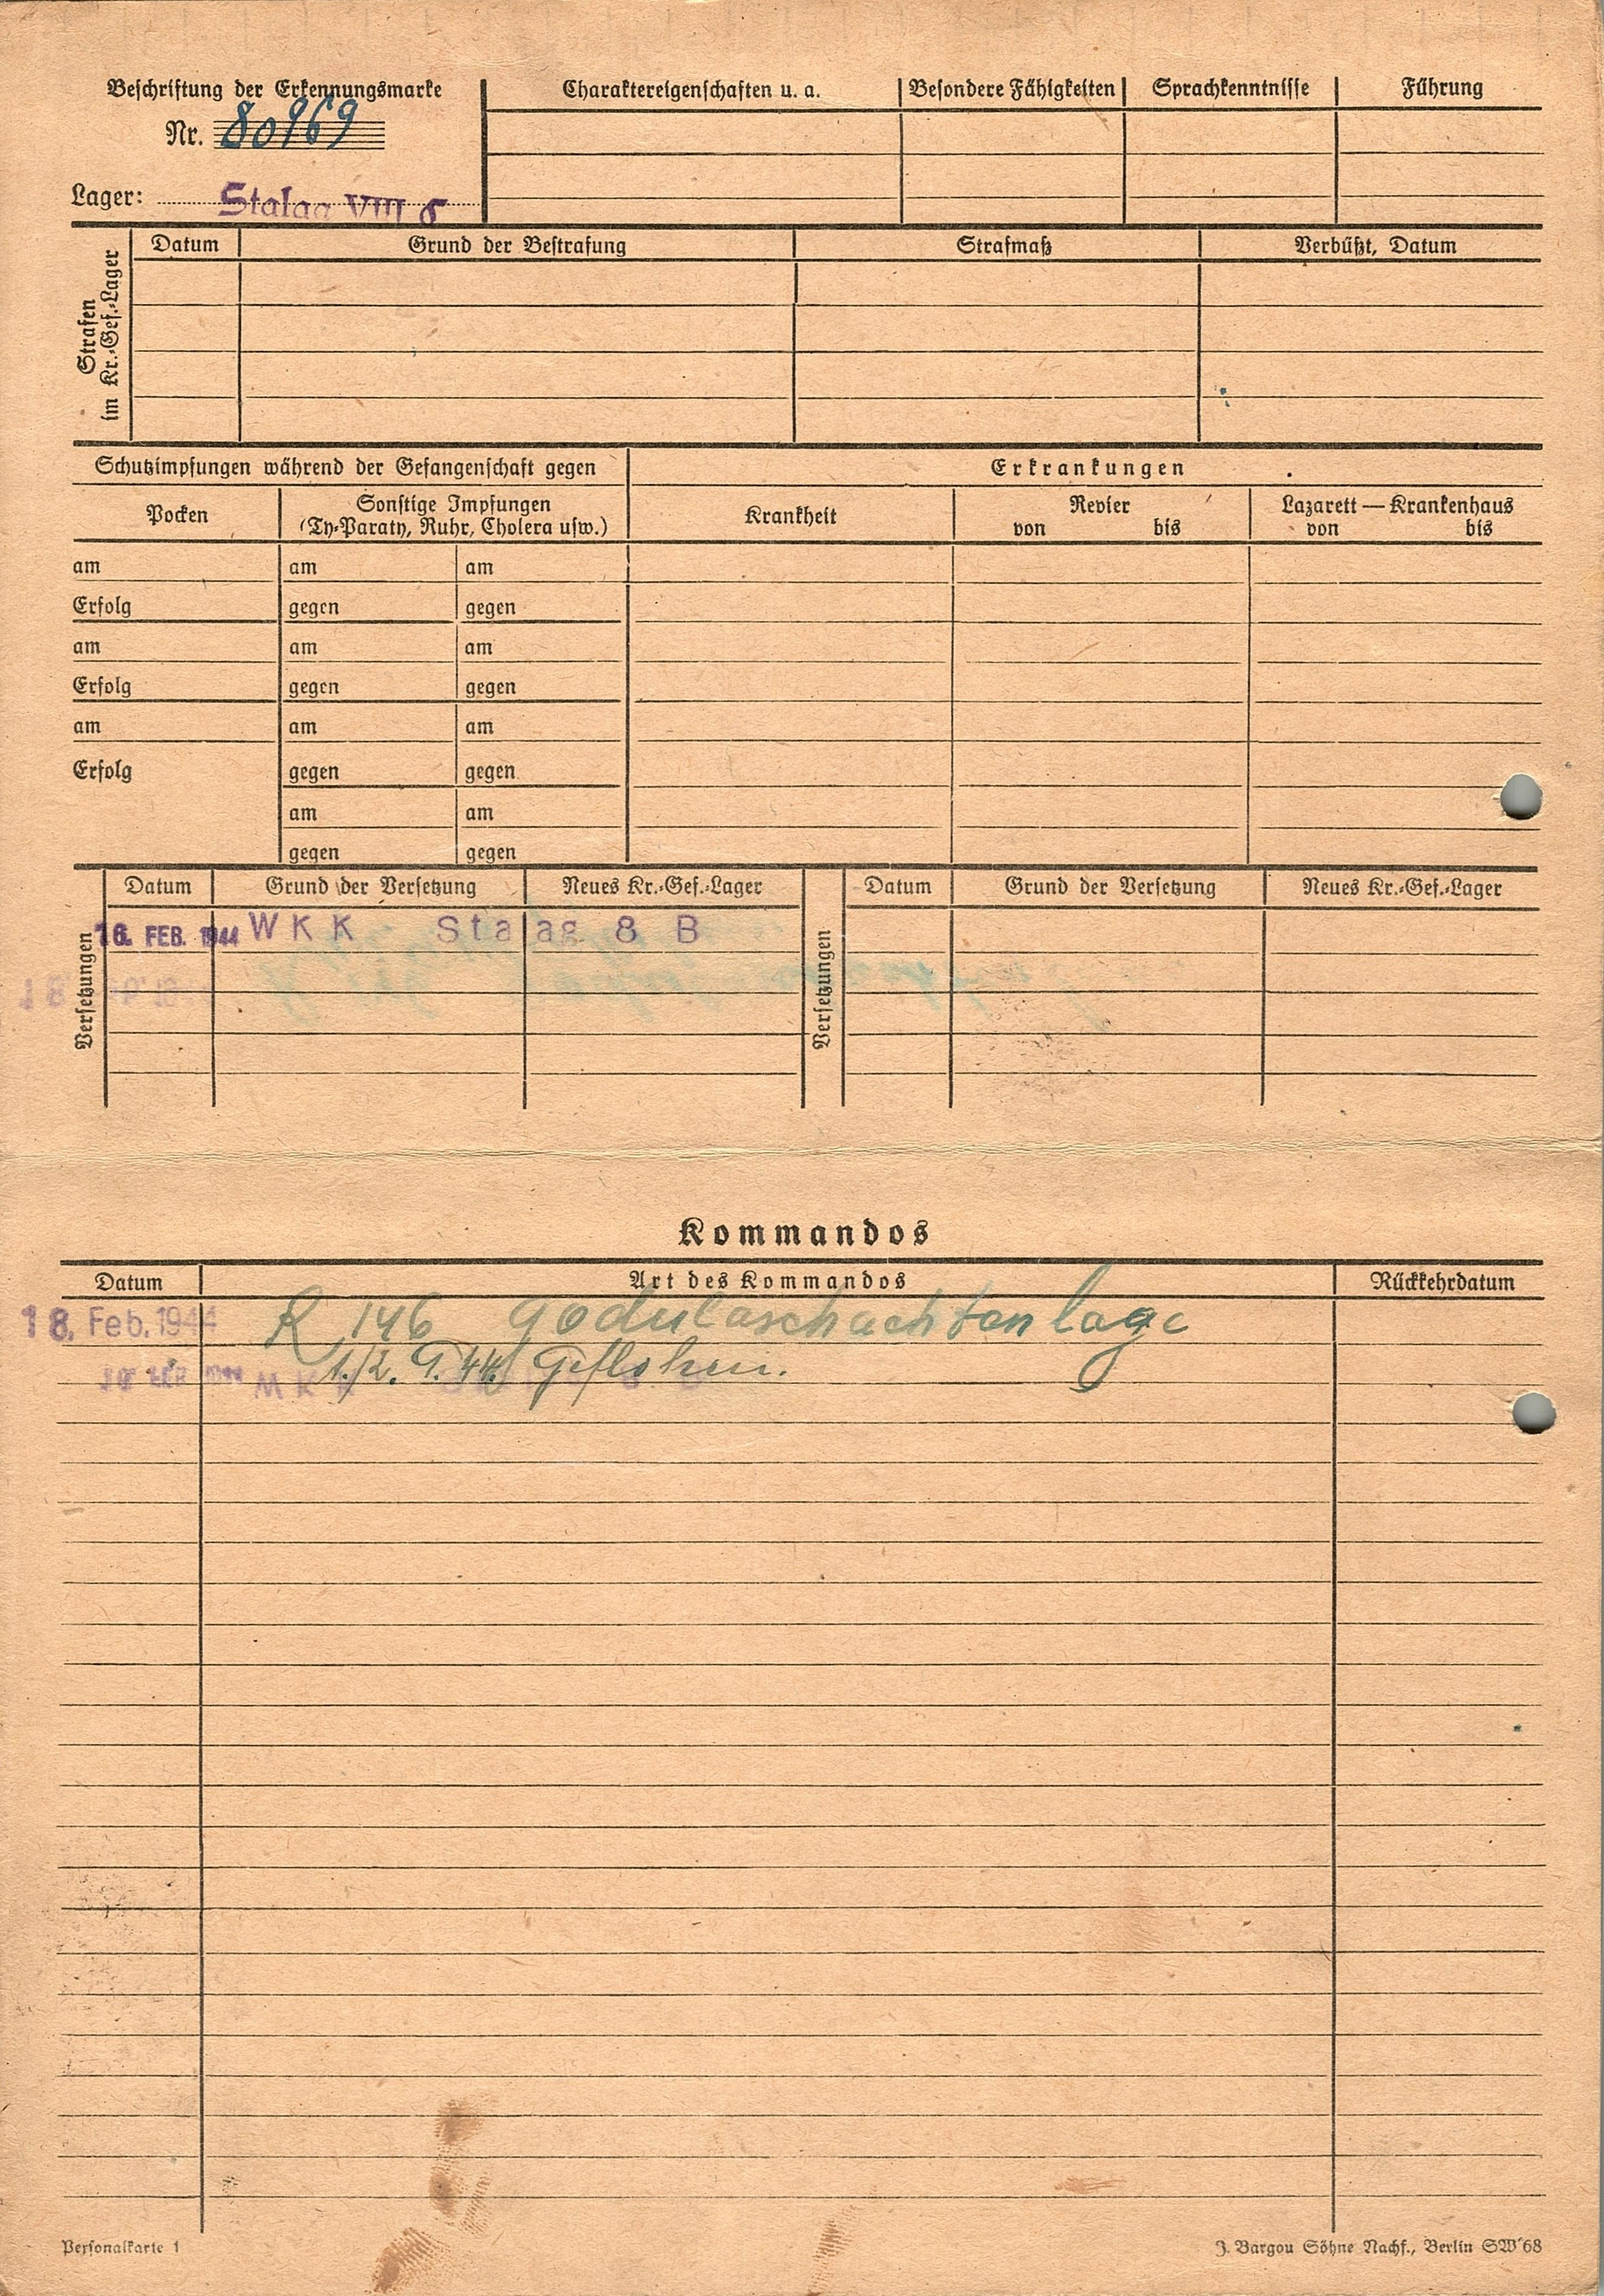 Beschriftung der Erkennungsmarke
Nr. 80969
Lager: Stalag VIII
Charaktereigenschaften u. a. Besondere Fähigkeiten Sprachkenntnisse Führung
Strafen
im Kr.-Gef.-Lager
Datum Grund der Bestrafung Strafmaß Verbüßt, Datum
Schutzimpfungen während der Gefangenschaft gegen Erkrankungen
Pocken
Sonstige Impfungen
(Ty-Paraty, Ruhr, Cholera usw.)
Krankheit
Revier
von bis
Lazarett — Krankenhaus
von bis
am am am
Erfolg gegen gegen
am am am
Erfolg gegen gegen
am am am
Erfolg gegen gegen
am am
gegen gegen
Versetzungen
Datum Grund der Versetzung Neues Kr.-Gef.-Lager
16. FEB. 1944 WKK Stalag 8 B
Versetzungen
Datum Grund der Versetzung Neues Kr.-Gef.-Lager
Kommandos
Datum Art des Kommandos Rückkehrdatum
18. Feb. 1944 R 146 Godulaschachtanlage
1./2. 9. 44 Geflohen.
Personalkarte 1
J. Bargou Söhne Nachf., Berlin SW 68